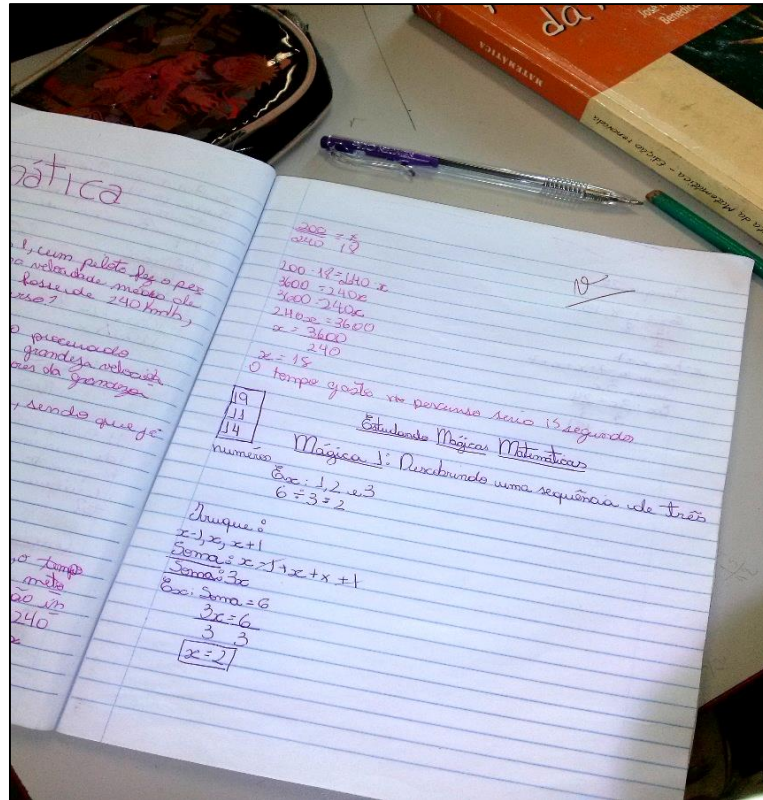 da
José
Benedic
MATEMÁTICA
ta da Matemática - Edição renovada
mática
l, cum piloto fez o per
velocidade média de
fosse de 240 km/h,
erso?
o procurado
grandeza velocida
es da grandeza
, sendo que já
, o tempo
ão in
240
x
200 = x
240 18
200 · 18 = 240 · x
3600 = 240x
3600 = 240x
240x = 3600
x = 3600
240
x = 15
O tempo gasto no percurso seria 15 segundos
19
11
14
Estudando Mágicas Matemáticas
Mágica 1: Descobrindo uma sequência de três
numéros
Ex: 1, 2 e 3
6 ÷ 3 = 2
Truque:
x-1, x, x+1
Soma: x-1+x+x+1
Soma: 3x
Ex: Soma = 6
3x = 6
3 3
x = 2